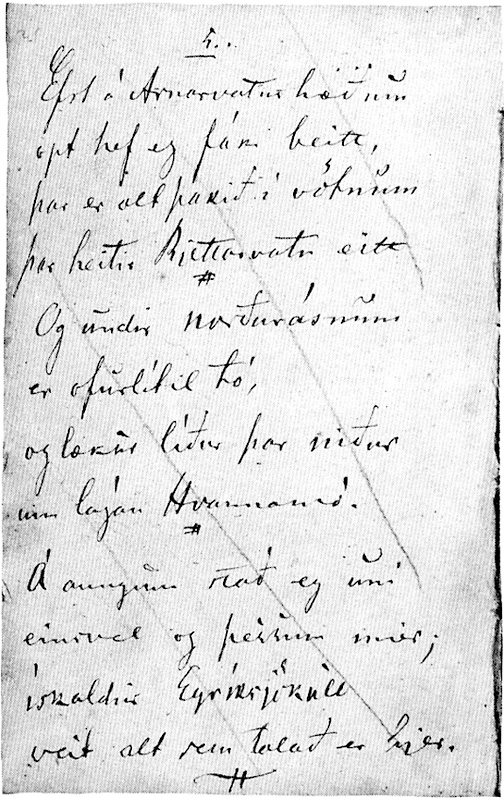 5..
Efst á Arnarvatnshæðum
opt hef eg fáki beitt,
þar er alt þakið í vötnum
þar heitir Rjettarvatn eitt
#
Og undir norðurásnum
er ofurlítil tó,
og lækur líður þar niður
um lágan Hvannamó.
#
Á aungum stað eg uni
einsvel og þessum mér;
ískaldur Eyríksjökull
veit alt sem talað er hjer.
#